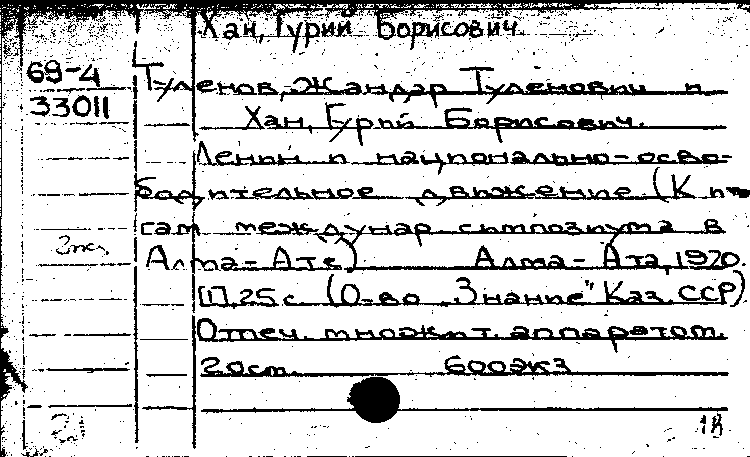 Хан, Гурий Борисович.
69-4
33011
Туленов, Жандар Туленович и
Хан, Гурий Борисович.
Ленин и национально-осво-
бодительное движение (К ито-
гам междунар симпозиума в
2 экз
Алма-Ате) Алма-Ата, 1970.
[1], 25 с. (О-во "Знание" Каз. ССР)
Отпеч. множит. аппаратом.
20 см. 600 экз
21
18